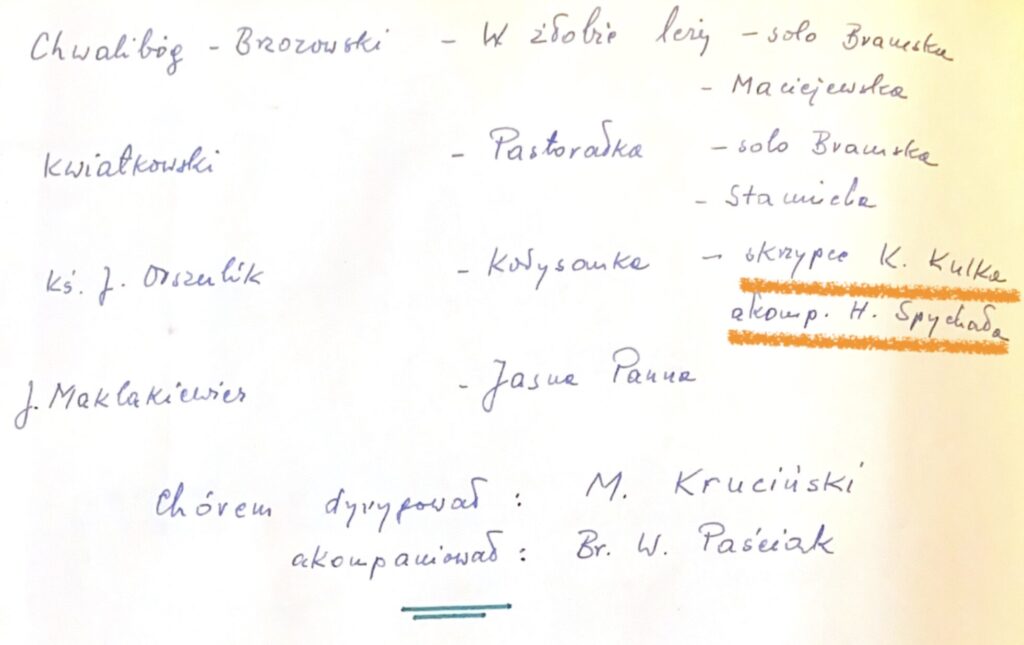 Chwalibóg - Brzozowski - W żłobie leży - solo Bramska
- Maciejewska
Kwiatkowski - Pastorałka - solo Bramska
- Stamiela
Kś. J. Orszulik - Kołysanka - skrzypce K. Kulka
akomp. H. Spychała
J. Maklakiewicz - Jasna Panna
Chórem dyrygował : M. Kruciński
akompaniował : Br. W. Paściak